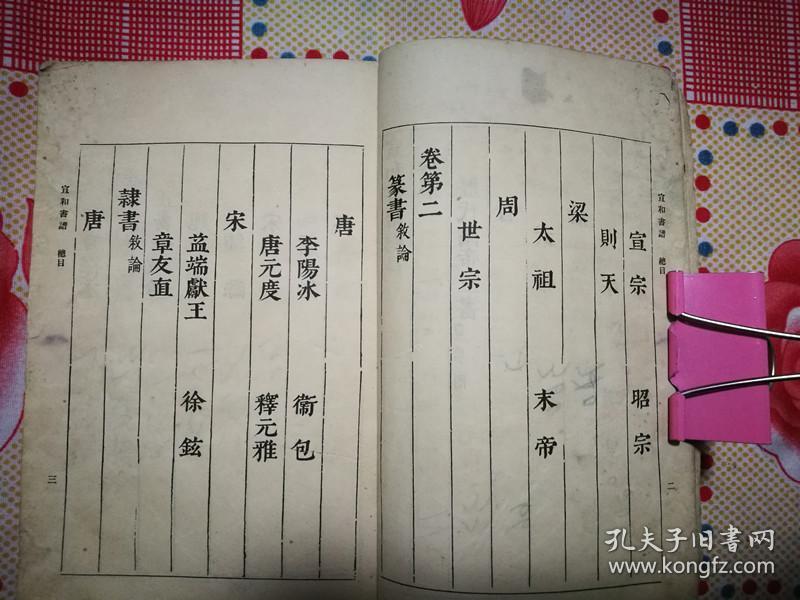 宣和書譜 總目 二
宣宗 昭宗
則天
梁
太祖 末帝
周
世宗
卷第二
篆書敘論
唐
李陽冰 衞包
唐元度 釋元雅
宋
益端獻王 徐鉉
章友直
隸書敘論
唐
宣和書譜 總目 三
孔夫子旧书网
www.kongfz.com